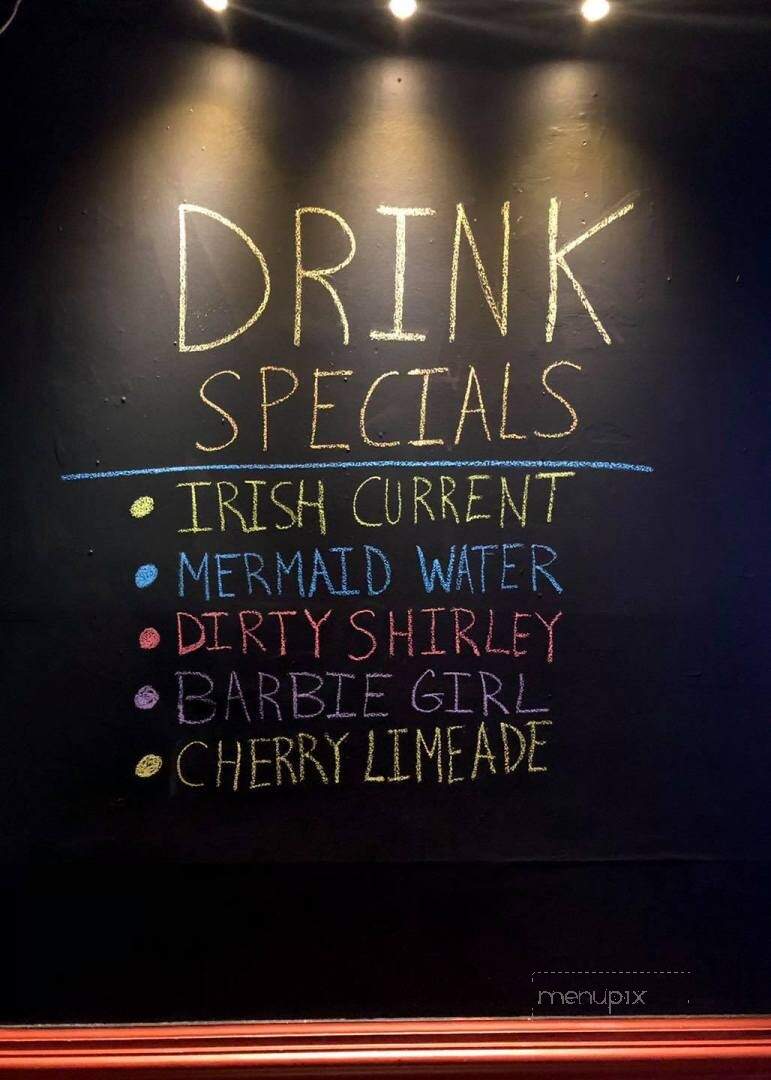 DRINK
SPECIALS
• IRISH CURRENT
• MERMAID WATER
• DIRTY SHIRLEY
• BARBIE GIRL
• CHERRY LIMEADE
menupix